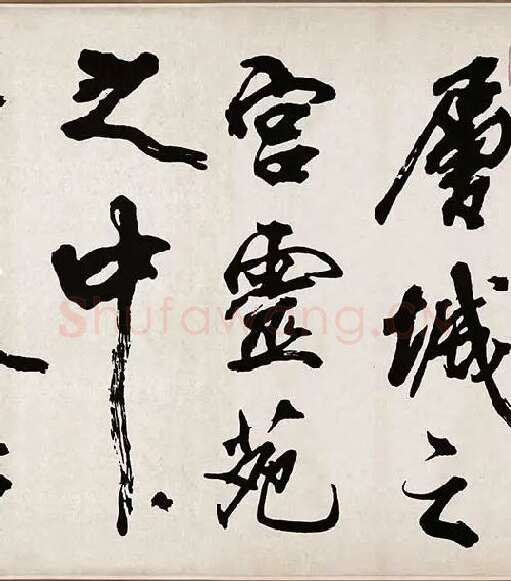 層城之
宮靈苑
之中
Shufawang.cn